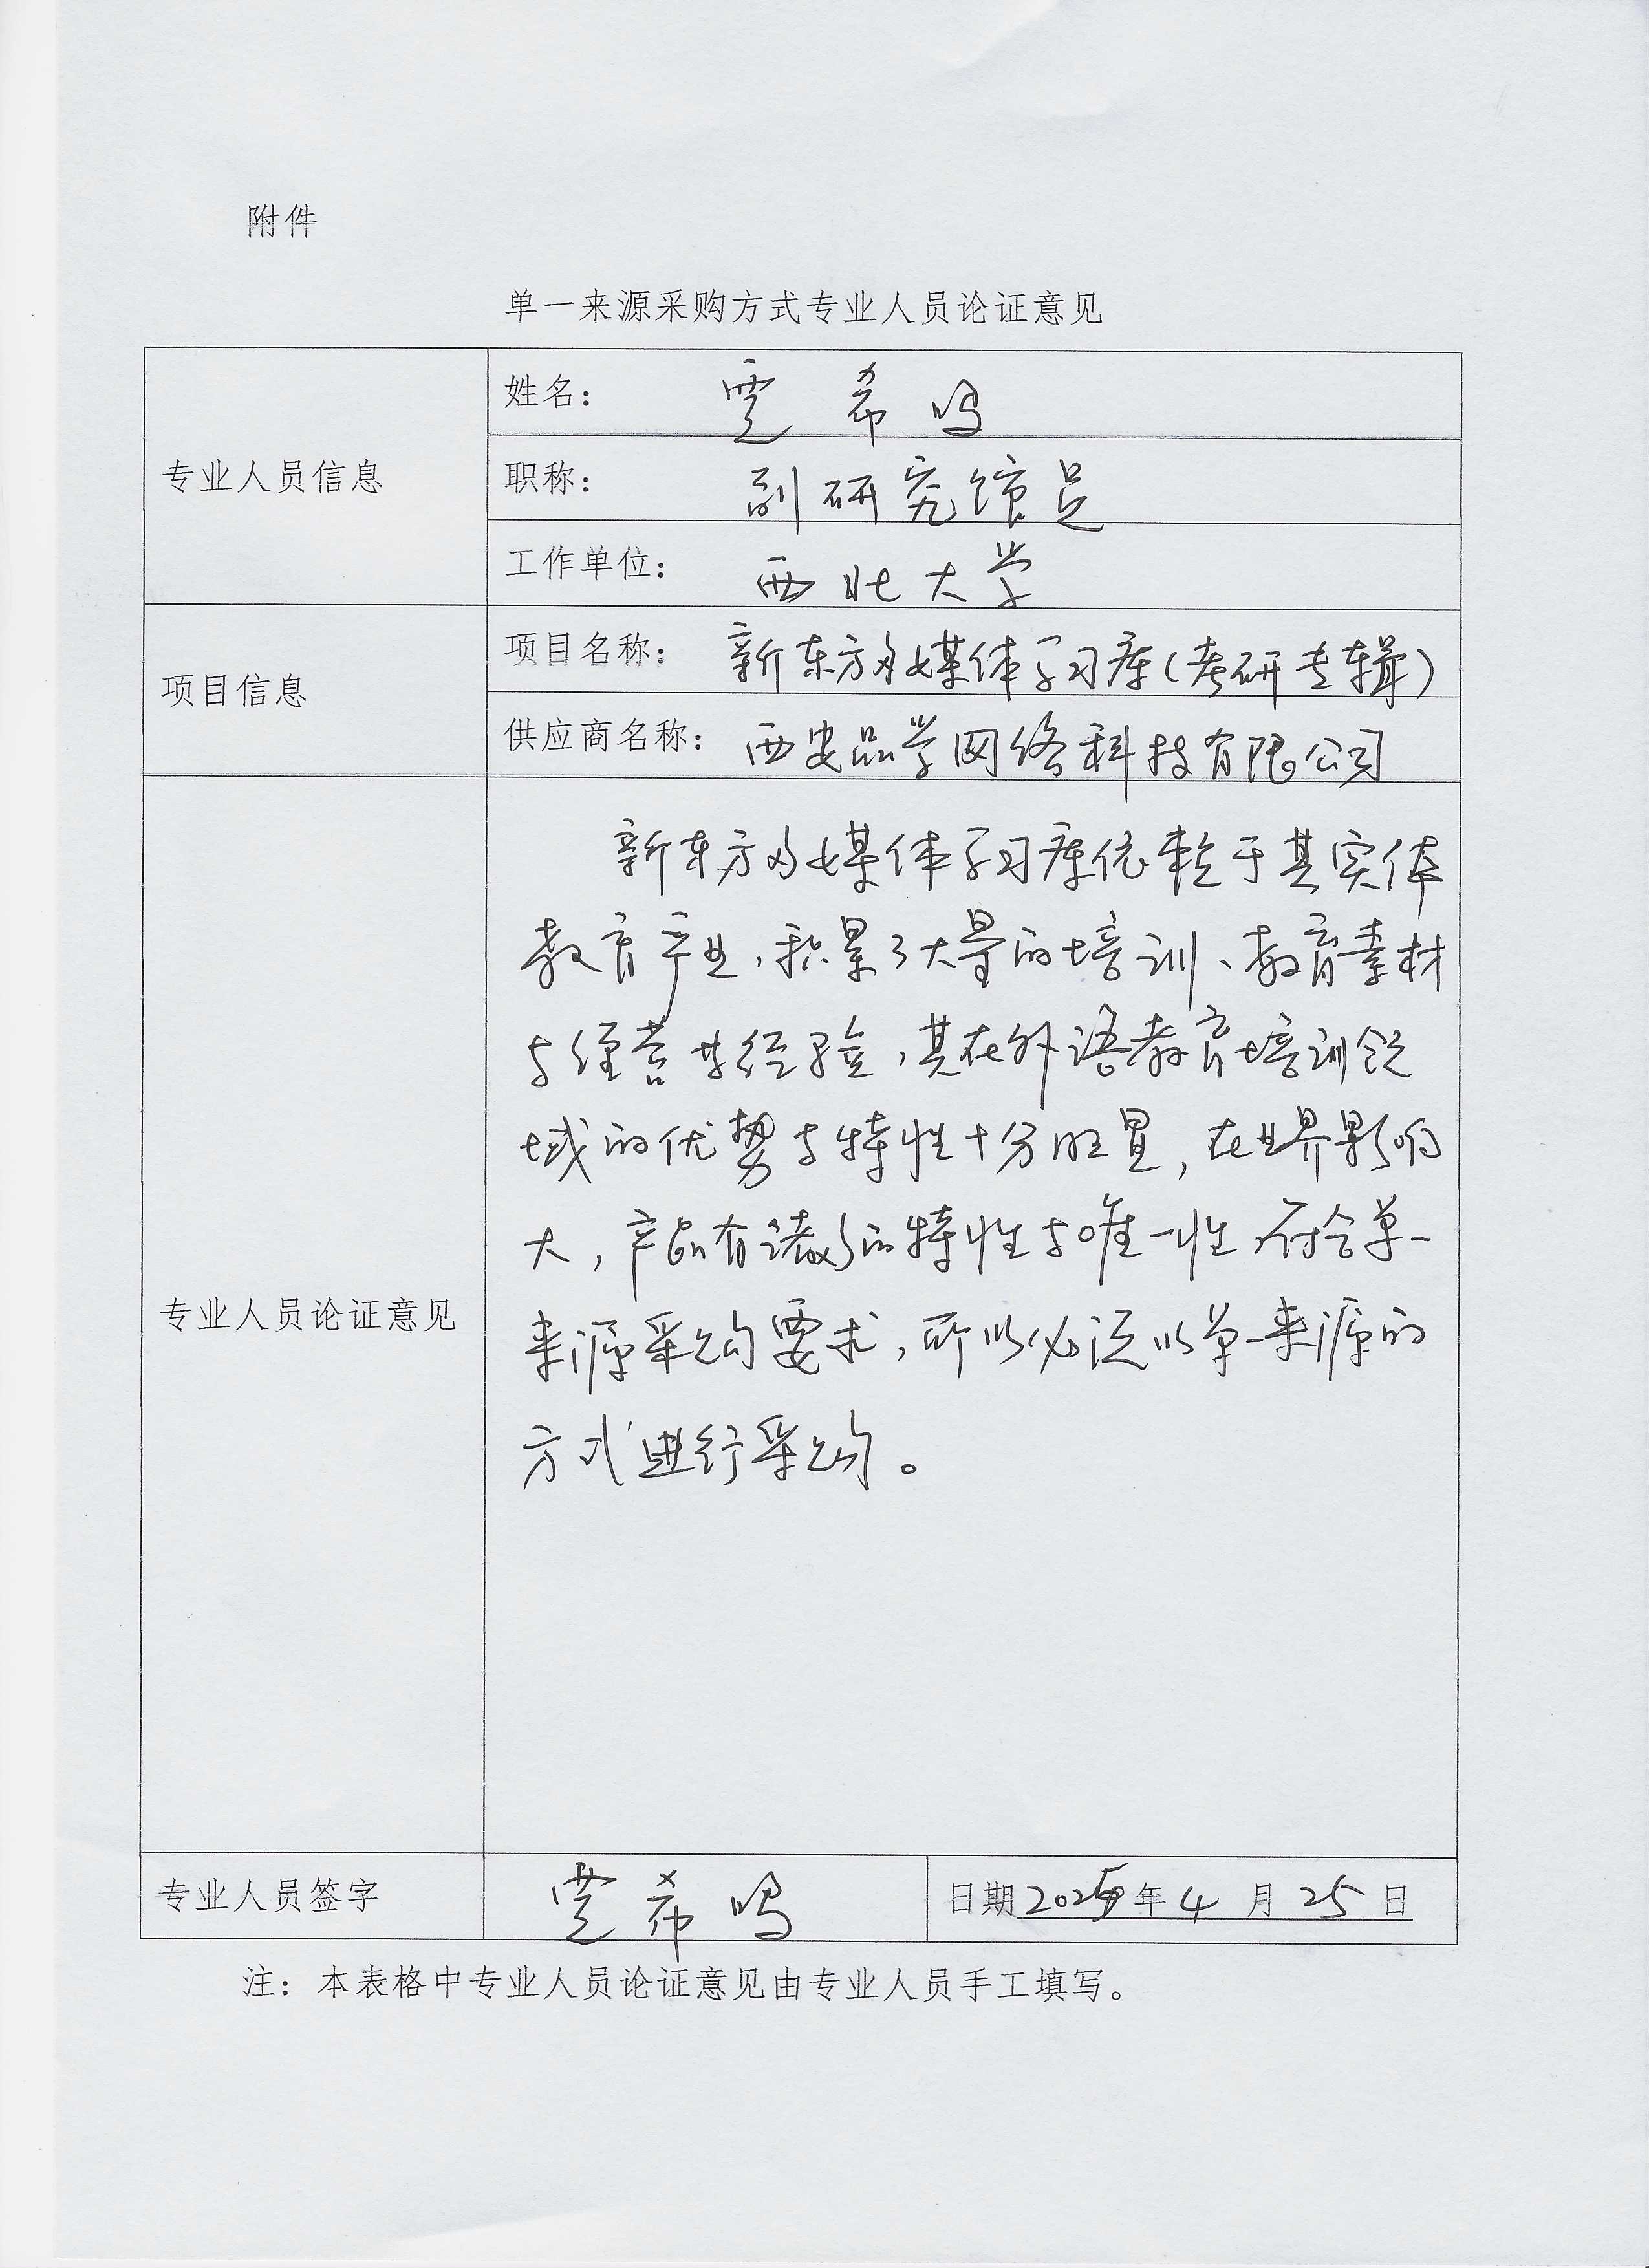 附件
单一来源采购方式专业人员论证意见
专业人员信息
姓名： 贾希鸣
职称： 副研究馆员
工作单位： 西北大学
项目信息
项目名称： 新东方多媒体学习库（考研专辑）
供应商名称： 西安品学网络科技有限公司
专业人员论证意见
新东方多媒体学习库依托于其实体
教育产业，积累了大量的培训、教育素材
与经营共经验，其在外语教育培训领
域的优势与特性十分明显，在世界影响
大，产品有诸多的特性与唯一性，符合单一
来源采购要求，所以必须以单一来源的
方式进行采购。
专业人员签字 贾希鸣
日期 2025年 4 月 25 日
注：本表格中专业人员论证意见由专业人员手工填写。